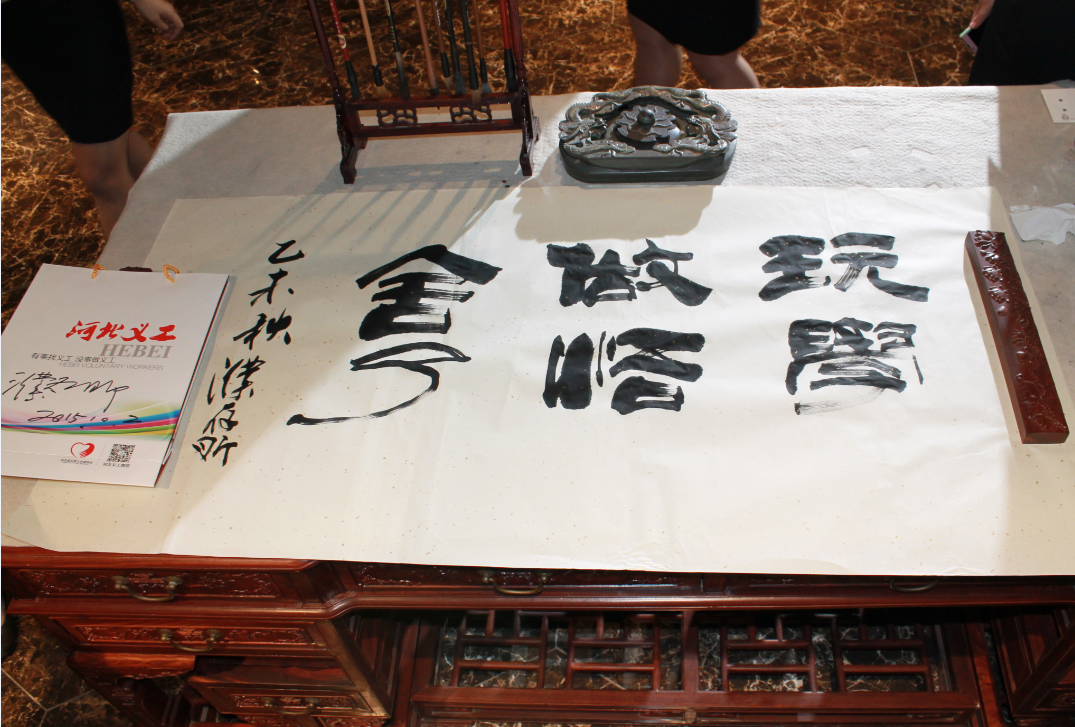 玩學
做悟
舍了
乙未秋 濮存昕
河北义工
HEBEI
有事找义工 没事做义工
HEBEI VOLUNTARY WORKERS
濮存昕
2015.10.2